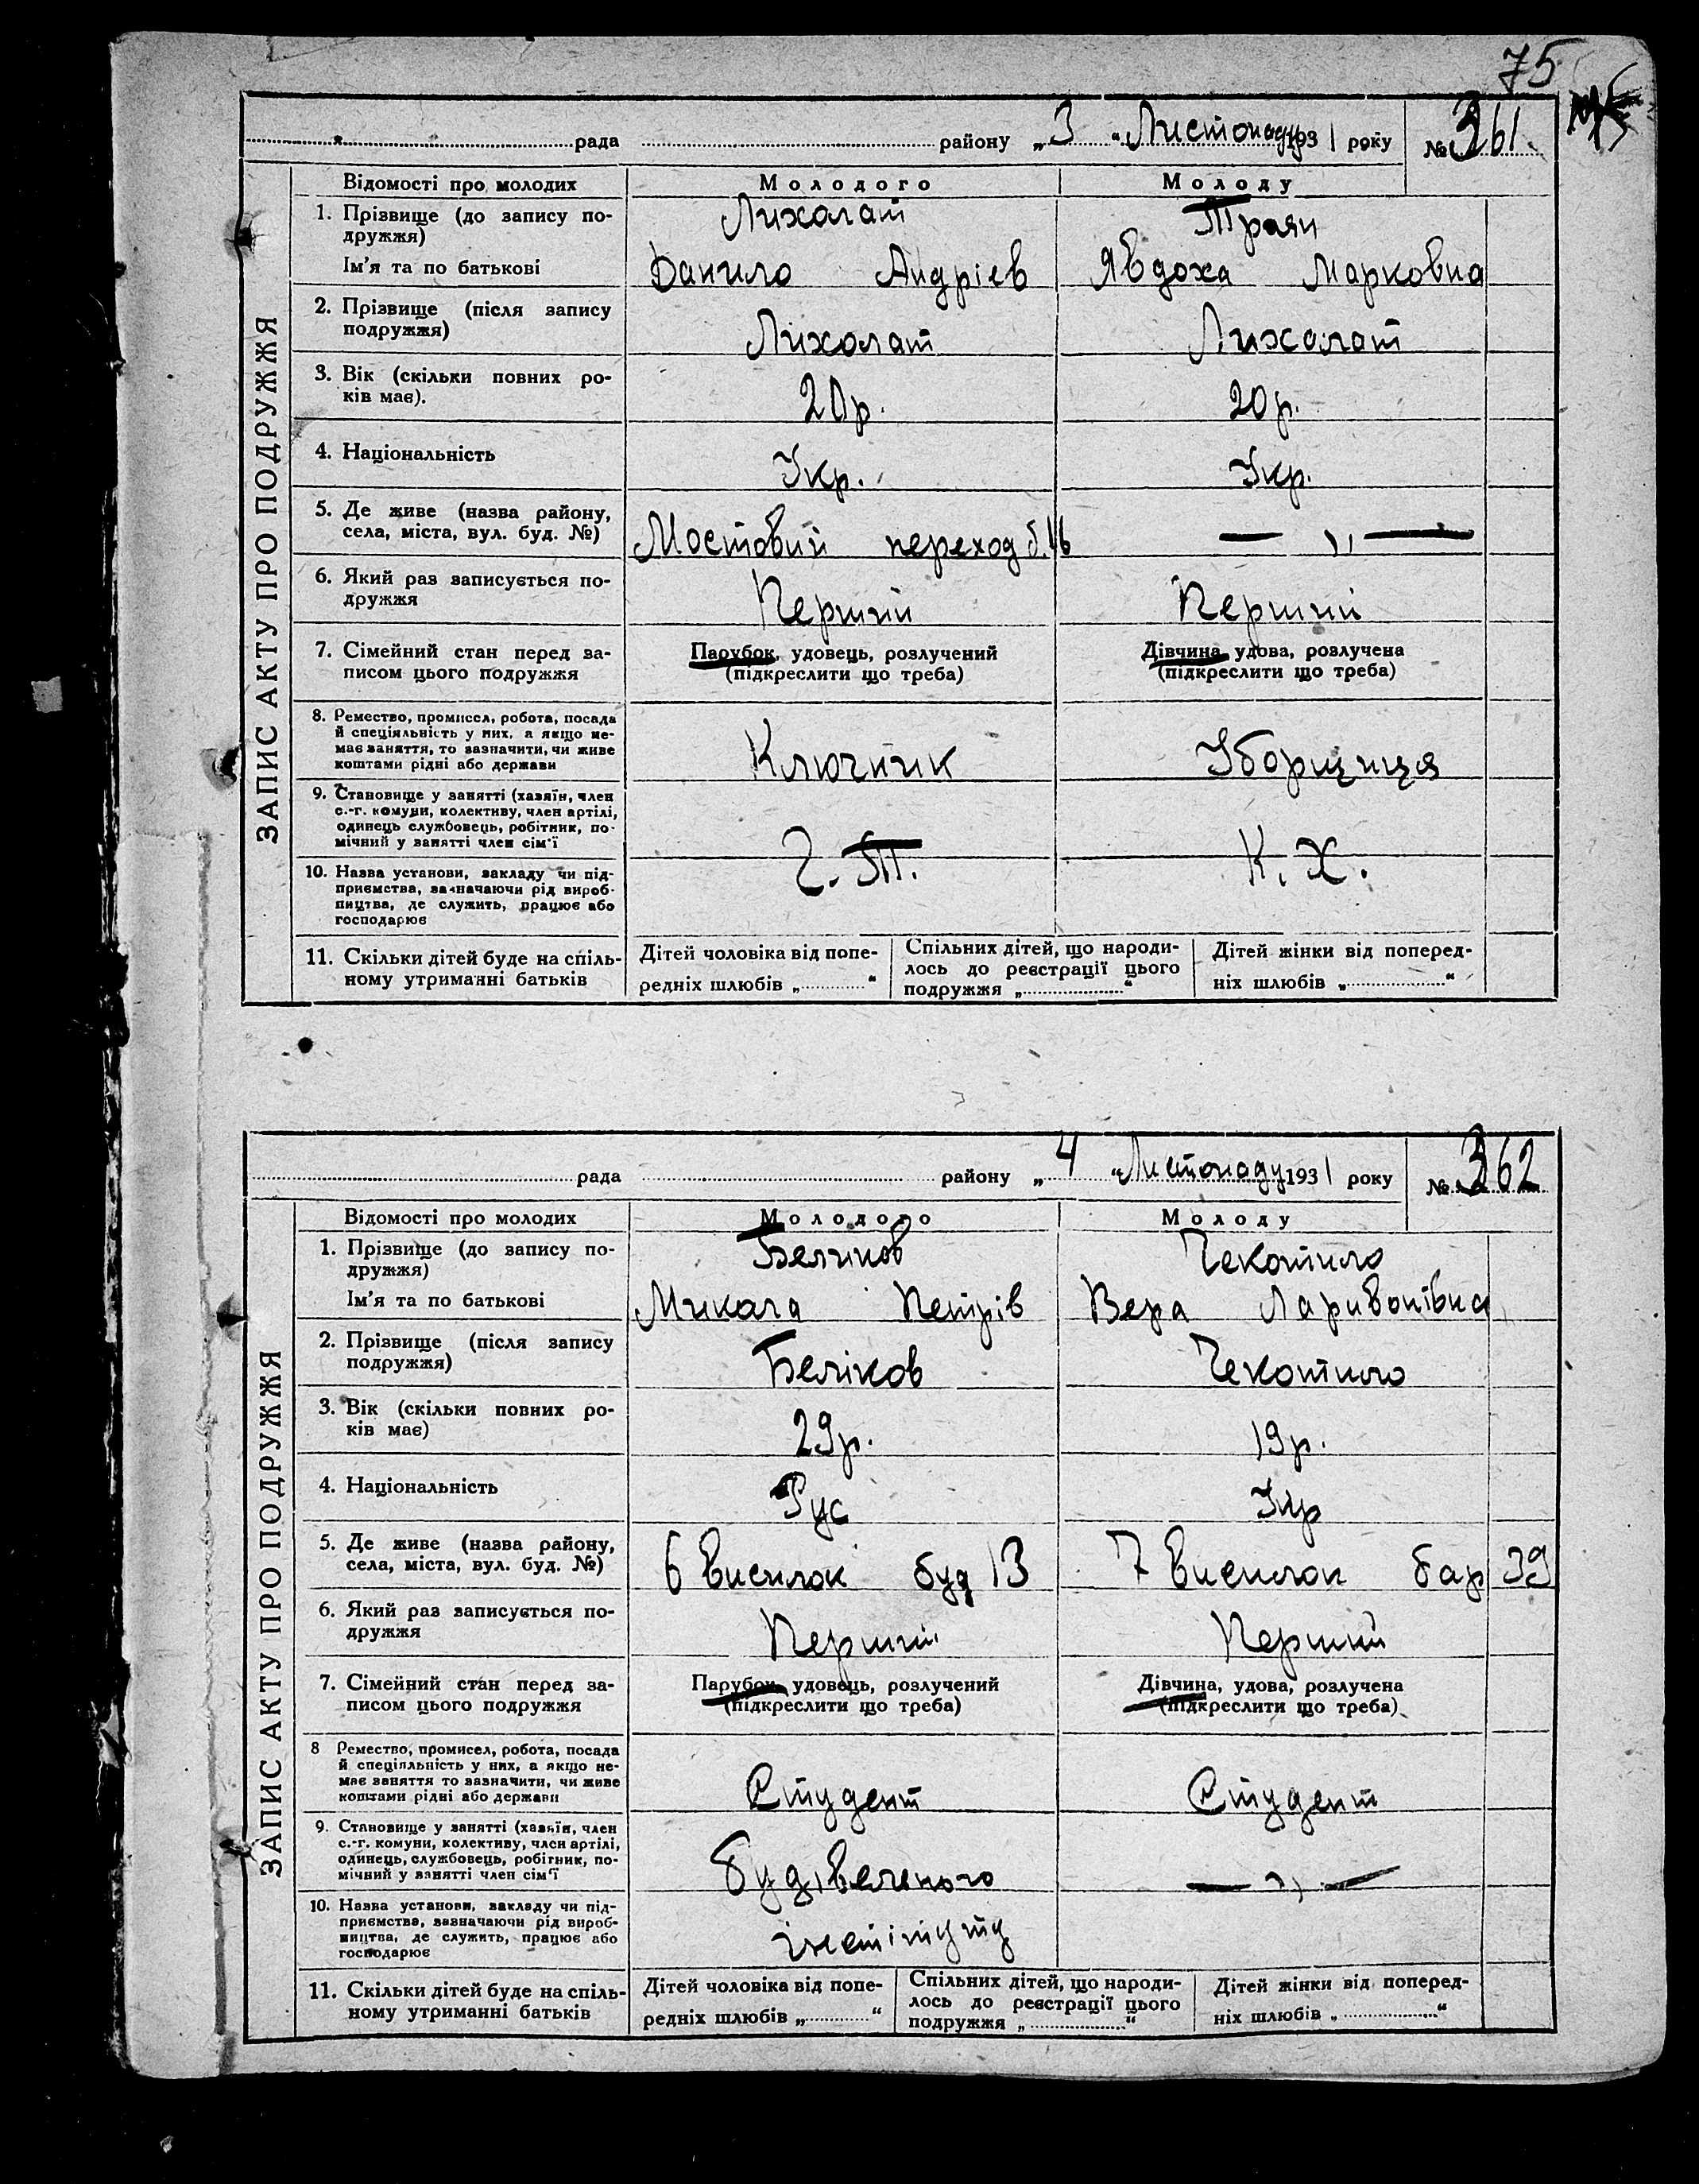 75
рада району „ 3 “ Листопаду 1931 року № 361.
ЗАПИС АКТУ ПРО ПОДРУЖЖЯ
Відомості про молодих Молодого Молоду
1. Прізвище (до запису по-
дружжя) Лихолат Траян
Ім'я та по батькові Данило Андріев Явдоха Марковна
2. Прізвище (після запису
подружжя) Лихолат Лихолат
3. Вік (скільки повних ро-
ків має). 20р. 20р.
4. Національність Укр. Укр.
5. Де живе (назва району,
села, міста, вул. буд. №) Мостовий переход б. — „ —
6. Який раз записується по-
дружжя Перший Перший
7. Сімейний стан перед за-
писом цього подружжя
Парубок, удовець, розлучений
(підкреслити що треба)
Дівчина, удова, розлучена
(підкреслити що треба)
8. Ремество, промисел, робота, посада
й спеціяльність у них, а якщо не-
має заняття, то зазначити, чи живе
коштами рідні або держави
Ключник Уборщиця
9. Становище у занятті (хазяїн, член
с.-г. комуни, колективу, член артілі,
одинець службовець, робітник, по-
мічний у занятті член сім'ї
10. Назва установи, закладу чи під-
приємства, зазначаючи рід вироб-
ництва, де служить, працює або
господарює
Т. К. Х.
11. Скільки дітей буде на спіль-
ному утриманні батьків
Дітей чоловіка від попе-
редніх шлюбів „ “
Спільних дітей, що народи-
лось до реєстрації цього
подружжя „ “
Дітей жінки від поперед-
ніх шлюбів „ “
рада району „ 4 “ Листопаду 1931 року № 362
ЗАПИС АКТУ ПРО ПОДРУЖЖЯ
Відомості про молодих Молодого Молоду
1. Прізвище (до запису по-
дружжя) Беліков Чекотило
Ім'я та по батькові Микола Петрів Вера Ларивонівна
2. Прізвище (після запису
подружжя) Беліков Чекотило
3. Вік (скільки повних ро-
ків має) 29р. 19р.
4. Національність Рус Укр
5. Де живе (назва району,
села, міста, вул. буд. №) 6 виселок буд 13 7 виселок бар 39
6. Який раз записується по-
дружжя Перший Перший
7. Сімейний стан перед за-
писом цього подружжя
Парубок, удовець, розлучений
(підкреслити що треба)
Дівчина, удова, розлучена
(підкреслити що треба)
8 Ремество, промисел, робота, посада
й спеціяльність у них, а якщо не-
має заняття то зазначити, чи живе
коштами рідні або держави
Студент Студент
9. Становище у занятті (хазяїн, член
с.-г. комуни, колективу, член артілі,
одинець, службовець, робітник, по-
мічний у занятті член сім'ї
Будівельного — „ —
10. Назва установи, закладу чи під-
приємства, зазначаючи рід вироб-
ництва, де служить, працює або
господарює
інстітуту
11. Скільки дітей буде на спіль-
ному утриманні батьків
Дітей чоловіка від попе-
редніх шлюбів „ “
Спільних дітей, що народи-
лось до реєстрації цього
подружжя „ “
Дітей жінки від поперед-
ніх шлюбів „ “